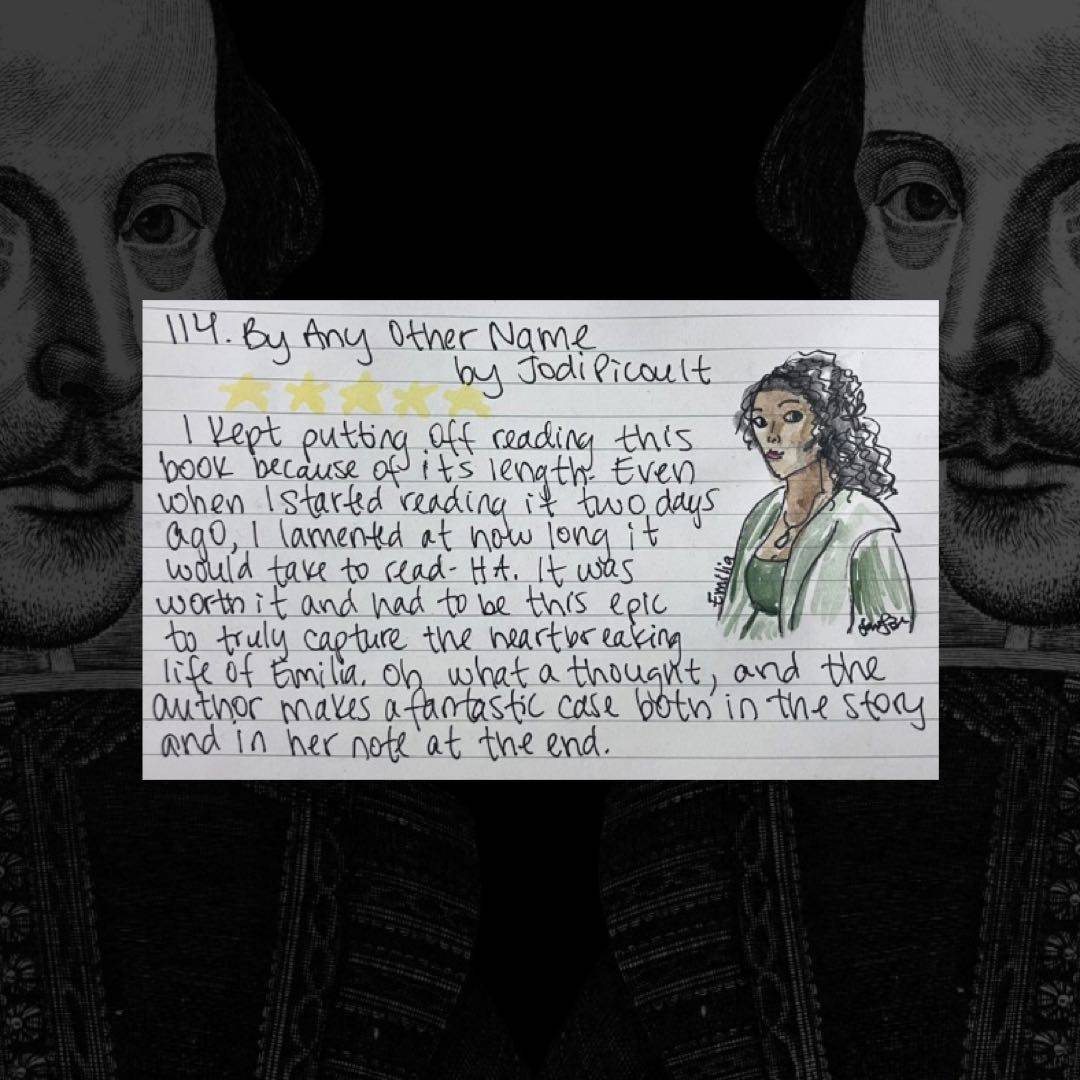 114. By Any Other Name
by Jodi Picoult
I kept putting off reading this
book because of its length. Even
when I started reading it two days
ago, I lamented at how long it
would take to read - HA. It was
worth it and had to be this epic
to truly capture the heartbreaking
life of Emilia. Oh what a thought, and the
author makes a fantastic case both in the story
and in her note at the end.
Emilia